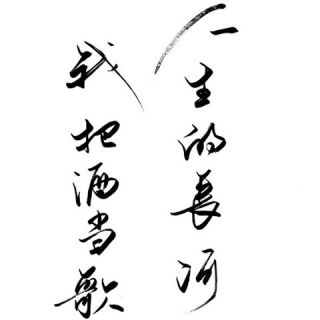 一生的長河
我把酒当歌